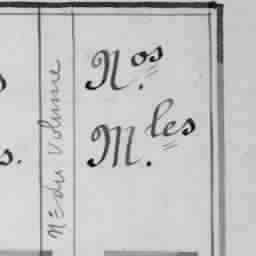 N.os
M.les
N= du Volume
s.